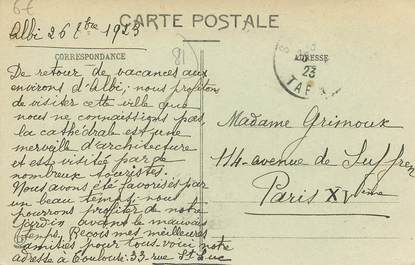 6f
Albi 26 7bre 1923
CARTE POSTALE
CORRESPONDANCE
ADRESSE
81
23
TARN
De retour de vacances aux
environs d'Albi, nous profitons
de visiter cette ville que
nous ne connaissions pas,
la cathédrale est une
merveille d'architecture
et est visitée par de
nombreux touristes.
Nous avons été favorisés par
un beau temps, nous
pourrons profiter de notre
jardin avant le mauvais
temps. Reçois mes meilleures
amitiés pour tous. voici notre
adresse à Toulouse: 33 rue St Luc
Madame Grimoux
114 avenue de Suffren
Paris XVième